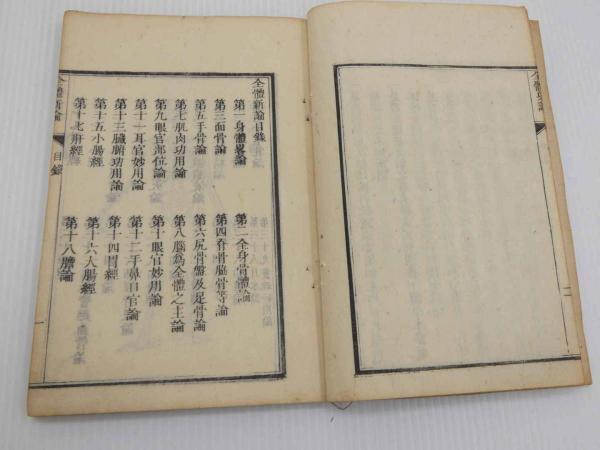 全體新論目錄
第一身體畧論
第二全身骨體論
第三面骨論
第四脊骨脇骨等論
第五手骨論
第六尻骨盤及足骨論
第七肌肉功用論
第八腦爲全體之主論
第九眼官部位論
第十眼官妙用論
第十一耳官妙用論
第十二手鼻口官論
第十三臟腑功用論
第十四胃經
第十五小腸經
第十六大腸經
第十七肝經
第十八膽論
全體新論
目錄
一
全體新論
二